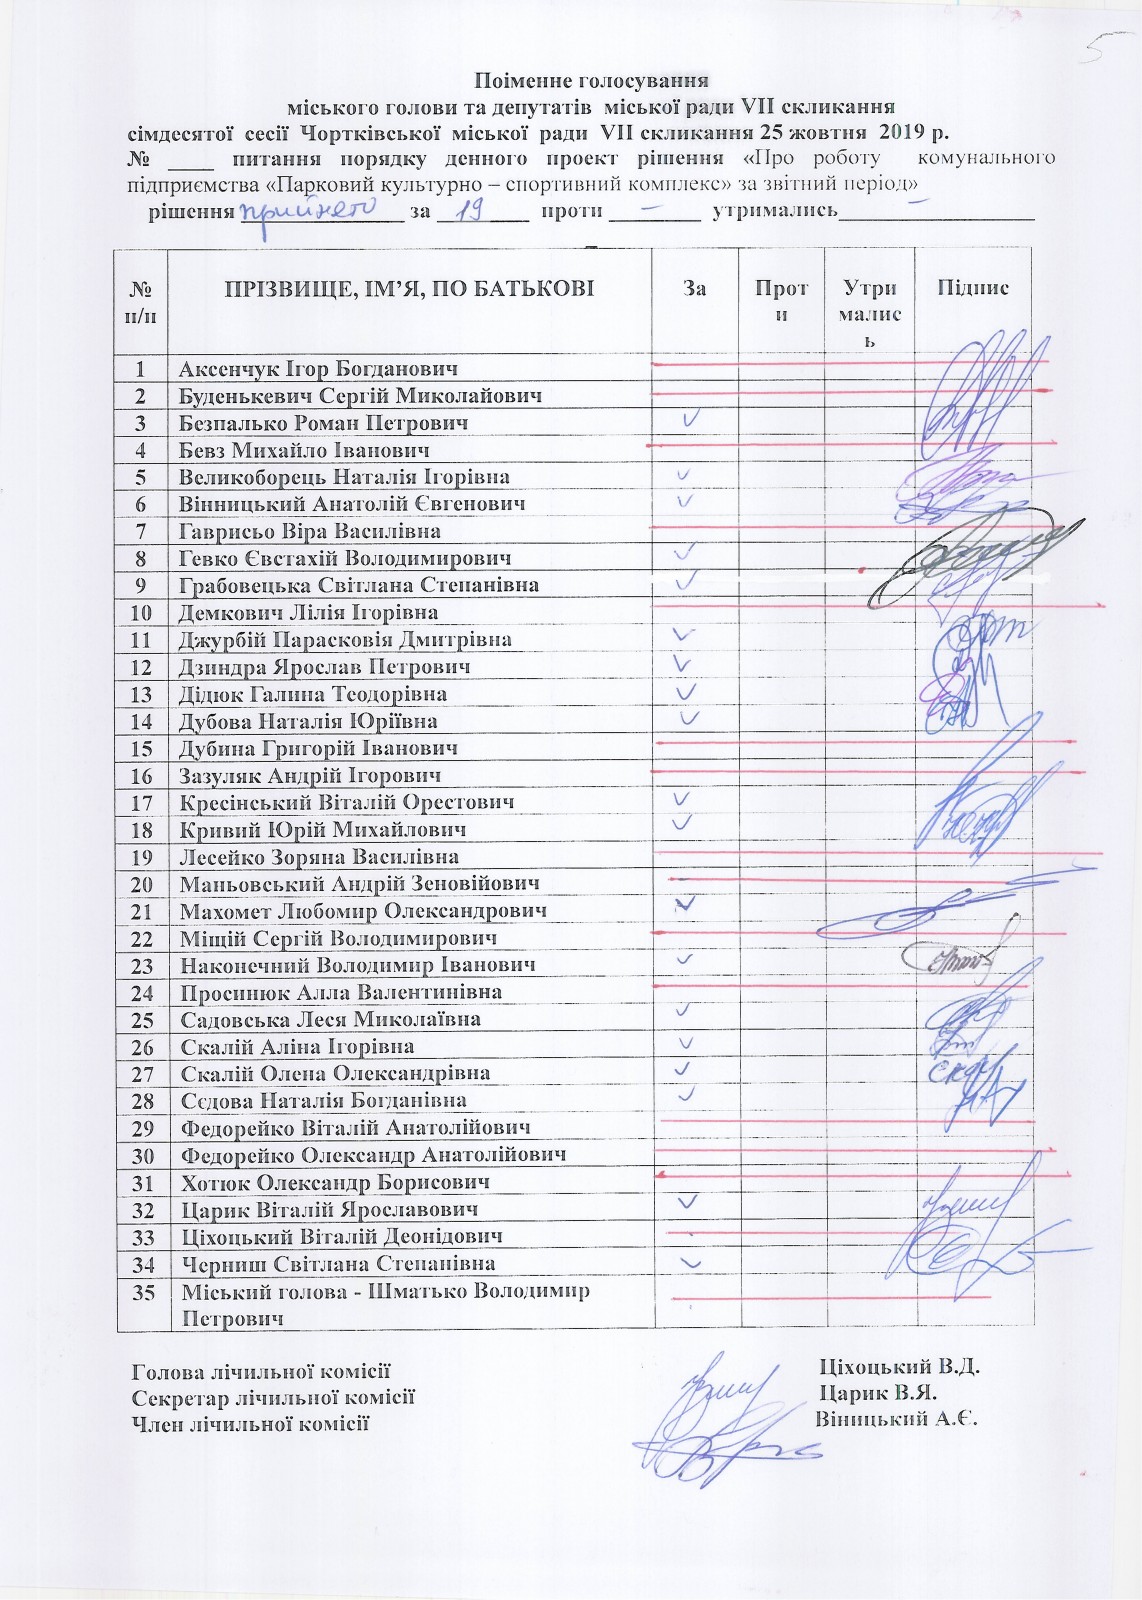 5
Поіменне голосування
міського голови та депутатів міської ради VII скликання
сімдесятої сесії Чортківської міської ради VII скликання 25 жовтня 2019 р.
№ ____ питання порядку денного проект рішення «Про роботу комунального
підприємства «Парковий культурно – спортивний комплекс» за звітний період»
рішення прийнято за 19 проти – утримались –
№ п/п ПРІЗВИЩЕ, ІМ’Я, ПО БАТЬКОВІ За Проти Утрималис ь Підпис
1 Аксенчук Ігор Богданович
2 Буденькевич Сергій Миколайович
3 Безпалько Роман Петрович ✓
4 Бевз Михайло Іванович
5 Великоборець Наталія Ігорівна ✓
6 Вінницький Анатолій Євгенович ✓
7 Гаврисьо Віра Василівна
8 Гевко Євстахій Володимирович ✓
9 Грабовецька Світлана Степанівна ✓
10 Демкович Лілія Ігорівна
11 Джурбій Парасковія Дмитрівна ✓
12 Дзиндра Ярослав Петрович ✓
13 Дідюк Галина Теодорівна ✓
14 Дубова Наталія Юріївна ✓
15 Дубина Григорій Іванович
16 Зазуляк Андрій Ігорович
17 Кресінський Віталій Орестович ✓
18 Кривий Юрій Михайлович ✓
19 Лесейко Зоряна Василівна
20 Маньовський Андрій Зеновійович
21 Махомет Любомир Олександрович ✓
22 Міщій Сергій Володимирович
23 Наконечний Володимир Іванович ✓
24 Просинюк Алла Валентинівна
25 Садовська Леся Миколаївна ✓
26 Скалій Аліна Ігорівна ✓
27 Скалій Олена Олександрівна ✓
28 Сєдова Наталія Богданівна ✓
29 Федорейко Віталій Анатолійович
30 Федорейко Олександр Анатолійович
31 Хотюк Олександр Борисович
32 Царик Віталій Ярославович ✓
33 Ціхоцький Віталій Деонідович
34 Черниш Світлана Степанівна ✓
35 Міський голова - Шматько Володимир
Петрович
Голова лічильної комісії Ціхоцький В.Д.
Секретар лічильної комісії Царик В.Я.
Член лічильної комісії Віницький А.Є.